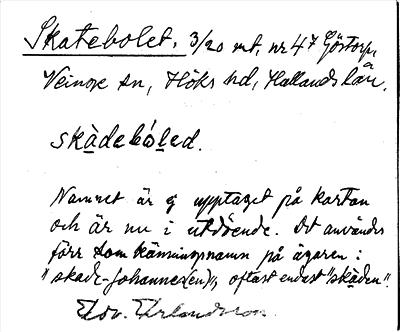 Skatebolet. 3/20 mt. nr 47 Göstorp,
Veinge sn, Höks hd, Hallands län.
skàdebóled.
Namnet är ej upptaget på kartan
och är nu i utdöende. Det användes
förr som känningsnamn på ägaren:
"skade-Johannes(en)", oftast endast "skàden".
Edv. Erlandsson